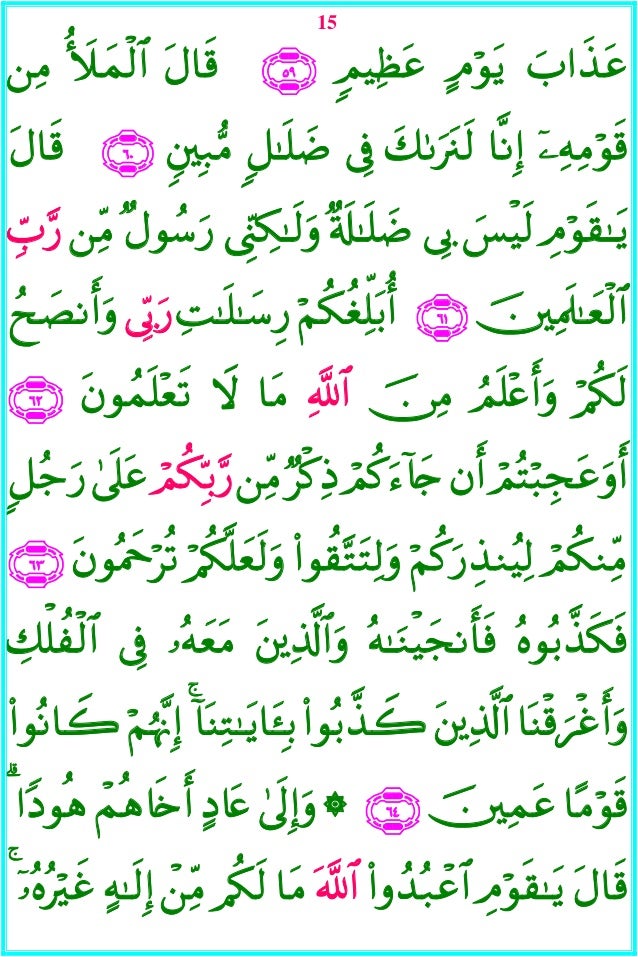 15
عَذَابَ يَوْمٍ عَظِيمٍ ٥٩ قَالَ ٱلْمَلَأُ مِن
قَوْمِهِۦٓ إِنَّا لَنَرَىٰكَ فِى ضَلَٰلٍ مُّبِينٍ ٦٠ قَالَ
يَٰقَوْمِ لَيْسَ بِى ضَلَٰلَةٌ وَلَٰكِنِّى رَسُولٌ مِّن رَّبِّ
ٱلْعَٰلَمِينَ ٦١ أُبَلِّغُكُمْ رِسَٰلَٰتِ رَبِّى وَأَنصَحُ
لَكُمْ وَأَعْلَمُ مِنَ ٱللَّهِ مَا لَا تَعْلَمُونَ ٦٢
أَوَعَجِبْتُمْ أَن جَآءَكُمْ ذِكْرٌ مِّن رَّبِّكُمْ عَلَىٰ رَجُلٍ
مِّنكُمْ لِيُنذِرَكُمْ وَلِتَتَّقُوا۟ وَلَعَلَّكُمْ تُرْحَمُونَ ٦٣
فَكَذَّبُوهُ فَأَنجَيْنَٰهُ وَٱلَّذِينَ مَعَهُۥ فِى ٱلْفُلْكِ
وَأَغْرَقْنَا ٱلَّذِينَ كَذَّبُوا۟ بِـَٔايَٰتِنَآ ۚ إِنَّهُمْ كَانُوا۟
قَوْمًا عَمِينَ ٦٤ ۞ وَإِلَىٰ عَادٍ أَخَاهُمْ هُودًا ۗ
قَالَ يَٰقَوْمِ ٱعْبُدُوا۟ ٱللَّهَ مَا لَكُم مِّنْ إِلَٰهٍ غَيْرُهُۥٓ ۚ